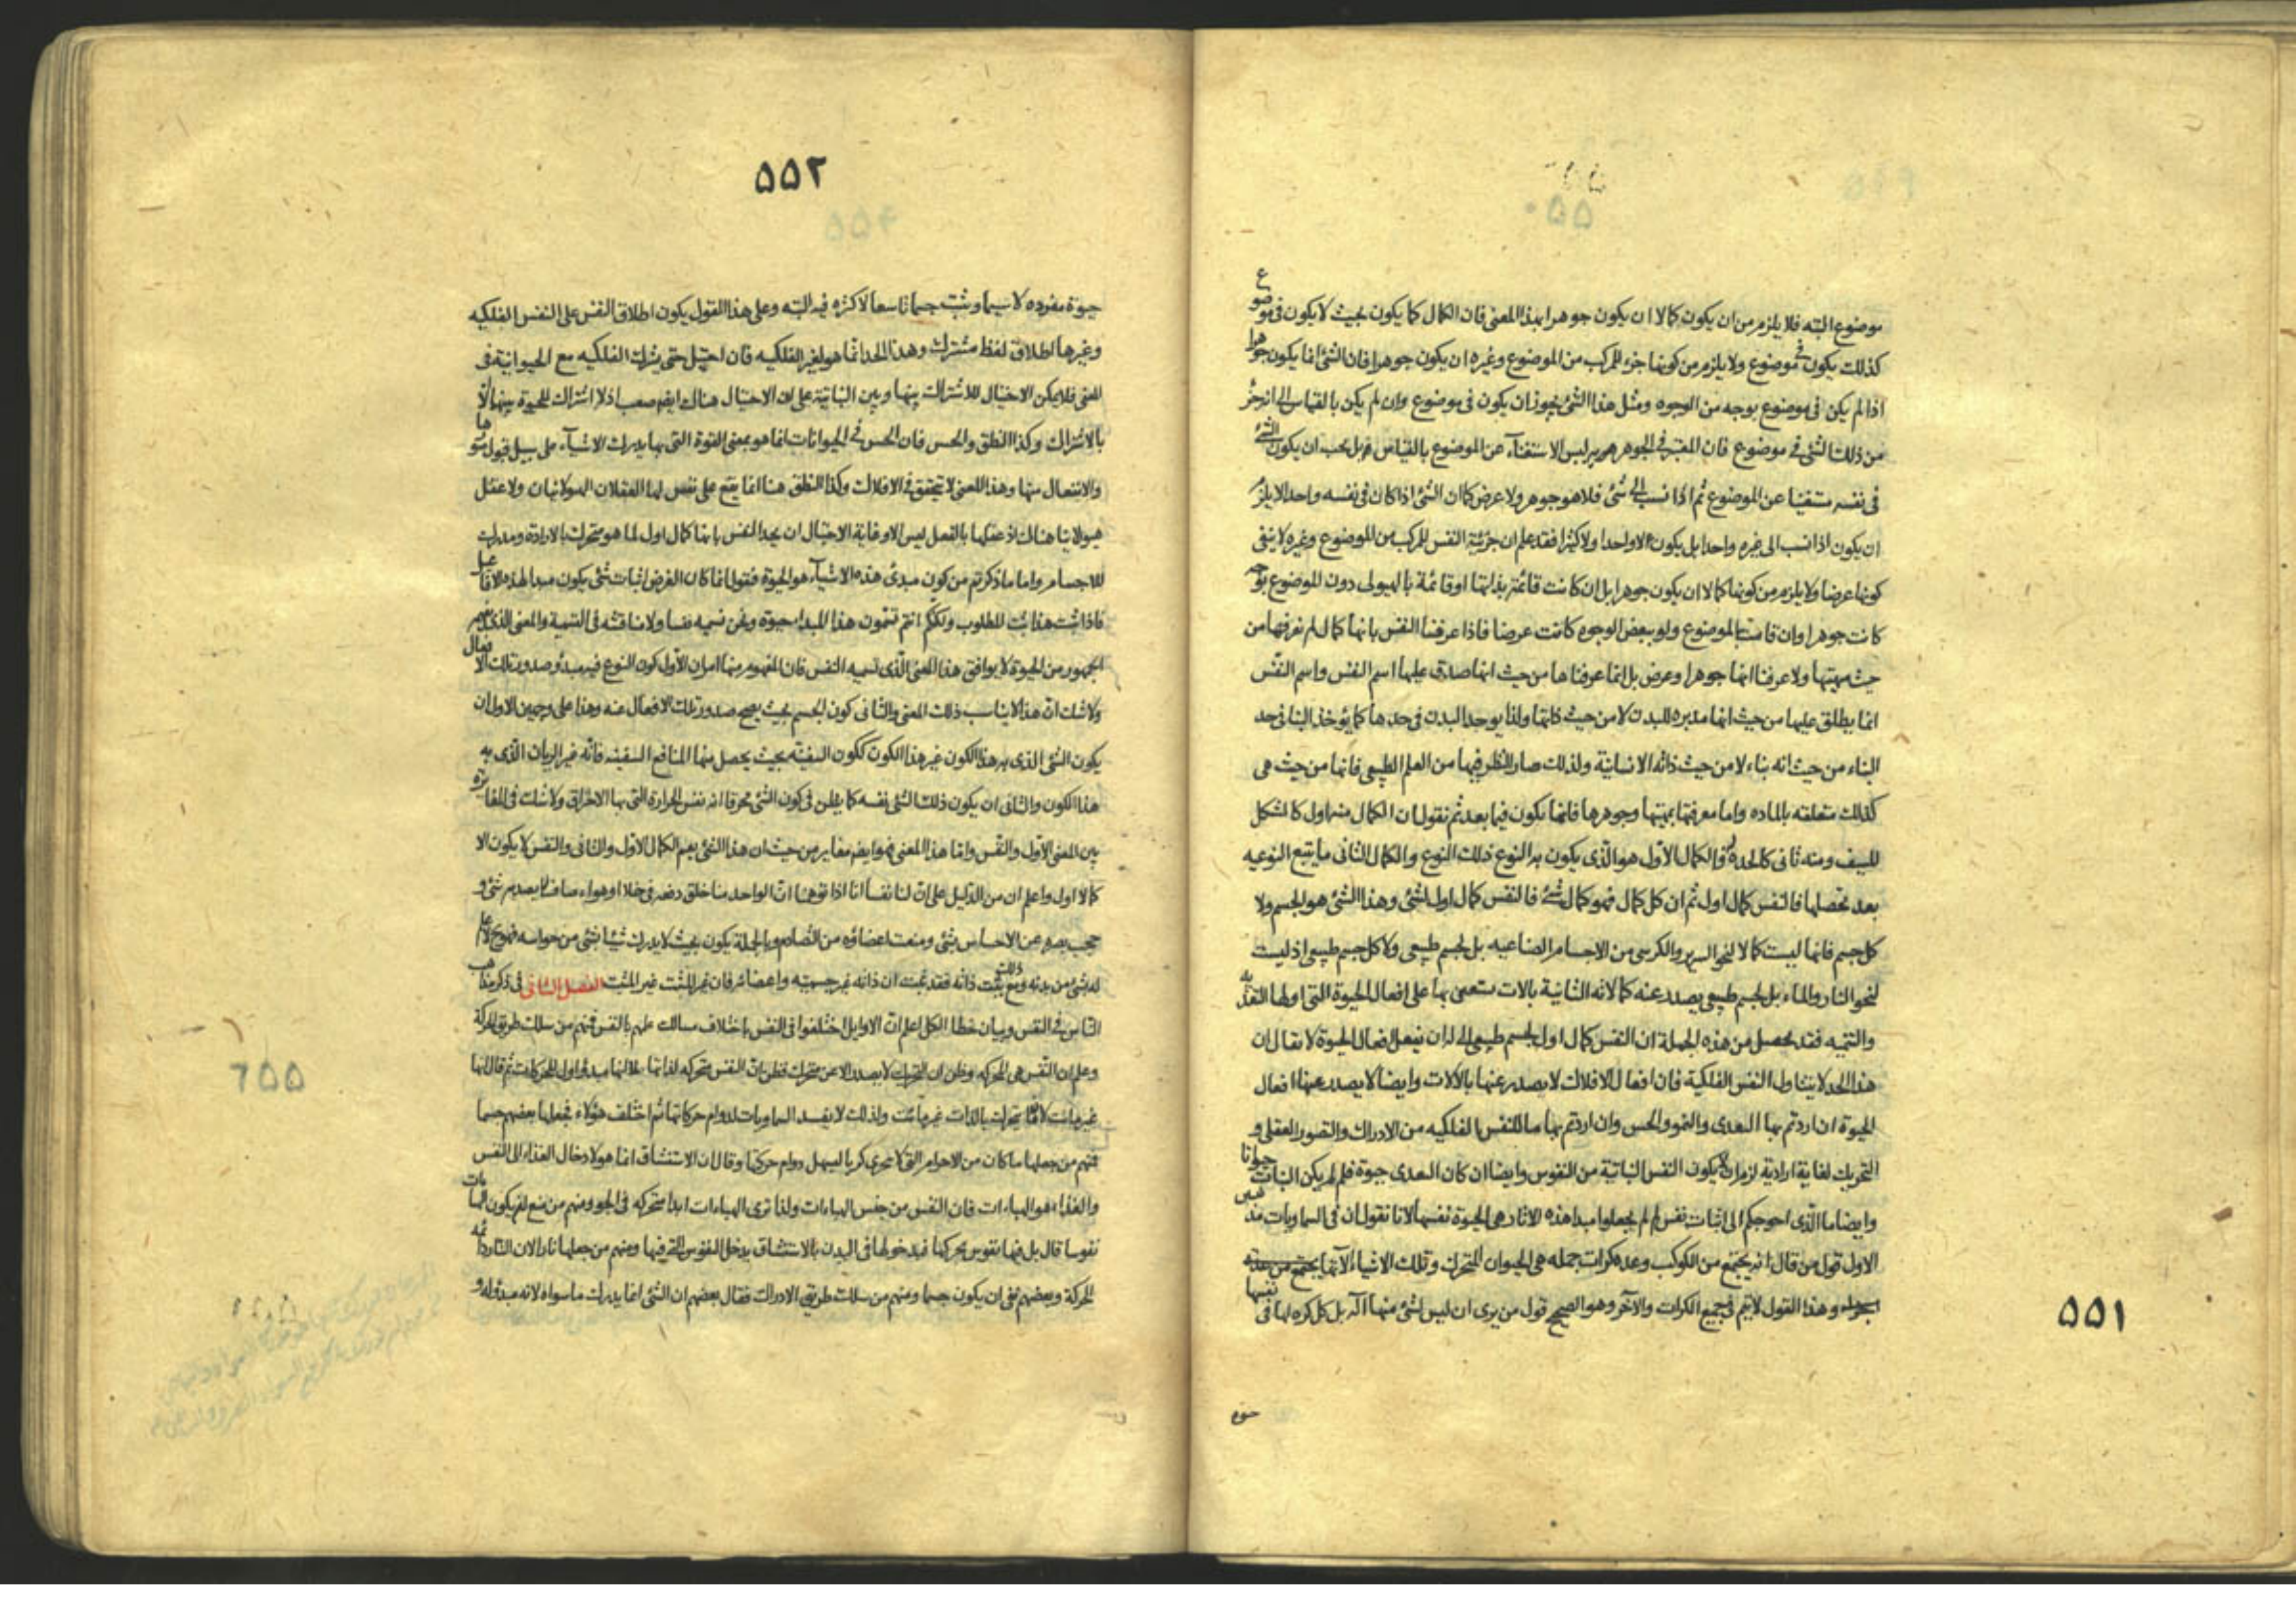 موضوع البته فلا يلزم من ان يكون كمالا ان يكون جوهرا بهذا المعنى فان الكمال كما يكون بحيث لا يكون فى موضوع
كذلك يكون فى موضوع ولا يلزم من كونها جزء للمركب من الموضوع وغيره ان يكون جوهرا فان الشئ انما يكون جوهرا
اذا لم يكن فى موضوع بوجه من الوجوه ومثل هذا الشئ يجوز ان يكون فى موضوع وان لم يكن بالقياس الى انه جزء
من ذلك الشئ فى موضوع فان المعتبر فى الجوهر ليس الاستغناء عن الموضوع بالقياس بل يجب ان يكون الشئ
فى نفسه مستغنيا عن الموضوع ثم اذا نسب الى شئ فلا هو جوهر ولا عرض كما ان الشئ اذا كان فى نفسه واحدا لا يلزم
ان يكون اذا نسب الى غيره واحدا بل يكون لا واحدا ولا كثيرا فقد علم ان جزئية النفس للمركب من الموضوع وغيره لا ينفى
كونها عرضا ولا يلزم من كونها كمالا ان يكون جوهرا بل ان كانت قائمة بذاتها او قائمة بالهيولى دون الموضوع بوجه
كانت جوهرا وان قامت بالموضوع ولو ببعض الوجوه كانت عرضا فاذا عرفنا النفس بانها كمال لم نعرفها من
حيث مهيتها ولا عرفنا انها جوهر او عرض بل انما عرفناها من حيث انها صدق عليها اسم النفس واسم النفس
انما يطلق عليها من حيث انها مدبره للبدن لا من حيث ذاتها ولذا يوجد البدن فى حدها كما يؤخذ البنا فى حد
البناء من حيث انه بناء لا من حيث ذاته الانسانية ولذلك صار النظر فيها من العلم الطبيعى فانها من حيث هى
كذلك متعلقه بالماده واما معرفتها بمهيتها وجوهرها فانها يكون فيما بعد ثم نقول ان الكمال منه اول كالشكل
للسيف ومنه ثانى كالحدة والكمال الاول هو الذى يكون به النوع ذلك النوع والكمال الثانى ما يتبع النوعيه
بعد تحصلها فالنفس كمال اول ثم ان كل كمال فهو كمال شئ فالنفس كمال اول لشئ وهذا الشئ هو الجسم ولا
كل جسم فانها ليست كمالا لنحو السرير والكرسى من الاجسام الصناعيه بل لجسم طبيعى ولا كل جسم طبيعى اذ ليست
لنحو النار والماء بل لجسم طبيعى يصدر عنه كمالاته الثانية بالات يستعين بها على افعال الحيوة التى اولها التغذيه
والتنميه فقد تحصل من هذه الجملة ان النفس كمال اول لجسم طبيعى الى له ان يفعل افعال الحيوة لا يقال ان
هذا الحد لا يتناول النفس الفلكية فان افعال الافلاك لا يصدر عنها بالالات وايضا لا يصدر عنها افعال
الحيوة ان اردتم بها التغدى والنمو والحس وان اردتم بها ما للنفس الفلكيه من الادراك والتصور العقلى و
التحريك لغاية ارادية لزم ان لا يكون النفس النباتية من النفوس وايضا ان كان التغدى حيوة فلم لم يكن النبات حيوانا
وايضا ما الذى احوجكم الى اثبات نفس لم لم يجعلوا مبدا هذه الاثار هى الحيوة نفسها لانا نقول ان فى السماويات مذهبين
الاول قول من قال انه يجتمع من الكوكب وعدة كرات جمله هى الحيوان المتحرك وتلك الاشياء الاتها
وهذا القول لا يتم فى جميع الكرات والآخر وهو الصحيح قول من يرى ان ليس لشئ منها آلة بل كل كره لها فى نفسها
حيوة
٥٥١
٥٥٢
حيوة مفرده لا سيما وثبت جسما تاسعا لا كثره فيه البته وعلى هذا القول يكون اطلاق النفس على النفس الفلكيه
وغيرها اطلاق لفظ مشترك وهذا الحد انما هو لغير الفلكيه فان احتيل حتى يشرك الفلكيه مع الحيوانية فى
المعنى فلا يمكن الاحتيال للاشتراك بينها وبين النباتية على ان الاحتيال هناك ايضا صعب اذ لا اشتراك للحيوة بينها الا
بالاشتراك وكذا النطق والحس فان الحس فى الحيوانات انما هو بمعنى القوة التى بها يدرك الاشياء على سبيل قبول صورها
والانفعال منها وهذا المعنى لا يتحقق فى الافلاك وكذا النطق هنا انما يقع على نفس لها العقلان الهيولانيان ولا عقل
هيولانيا هناك اذ عقلها بالفعل ليس الا وغاية الاحتيال ان يحد النفس بانها كمال اول لما هو متحرك بالارادة ومدرك
للاجسام واما ما ذكرتم من كون مبدئ هذه الاشياء هو الحيوة فنقول انما كان الغرض اثبات شئ يكون مبدا لهذه الافاعيل
فاذا ثبت هذا ثبت المطلوب ولكنكم انتم تسمون هذا المبدا حيوة ونحن نسميه نفسا ولا مناقشه فى التسمية والمعنى الذى يفهم
الجمهور من الحيوة لا يوافق هذا المعنى الذى نسميه النفس فان المفهوم منها امران الاول كون النوع فيه مبدء صدور تلك الافعال
ولا شك ان هذا لا يناسب ذلك المعنى والثانى كون الجسم بحيث يصح صدور تلك الافعال عنه وهذا على وجهين الاول ان
يكون الشئ الذى به هذا الكون غير هذا الكون ككون السفينه بحيث يحصل منها المنافع السفينه فانه غير الربان الذى به
هذا الكون والثانى ان يكون ذلك الشئ نفسه كما يظن فى كون الشئ محرقا انه نفس الحرارة التى بها الاحراق ولا شك فى المغايرة
بين المعنى الاول والنفس واما هذا المعنى فهو ايضا مغاير من حيث ان هذا الشئ يعم الكمال الاول والثانى والنفس لا يكون الا
كمالا اول واعلم ان من الدليل على ان لنا نفسا انا اذا توهمنا ان الواحد منا خلق دفعه فى خلا او هواء صاف لا يصدمه شئ و
حجب بصره عن الاحساس بشئ ومنعت اعضاؤه من التصادم وبالجملة يكون بحيث لا يدرك شيئا بشئ من حواسه فهو ح لا علم
له بشئ من بدنه ومع ذلك يثبت ذاته فقد ثبت ان ذاته غير جسميته واعضائه فان غير المثبت غير المثبت الفصل الثانى فى ذكر مذاهب
الناس فى النفس وبيان خطا الكل اعلم ان الاوايل اختلفوا فى النفس باختلاف مسالك علمهم بالنفس فمنهم من سلك طريق الحركة
وعلم ان النفس هى المحركه وظن ان التحريك لا يصدر الا عن متحرك فظن ان النفس متحركه لذاتها بل انها مبدء اول للحركات ثم قال انها
غير مائت لان ما يتحرك بالذات غير مائت ولذلك لا يفسد السماويات لدوام حركاتها ثم اختلف هؤلاء فجعلها بعضهم جسما
فمنهم من جعلها ما كان من الاجرام التى لا تتجزى كريا ليسهل دوام حركتها وقال ان الاستنشاق انما هو لادخال الغذاء الى النفس
والغذاء هو الهباءات فان النفس من جنس الهباءات ولذا ترى الهباءات ابدا متحركه فى الجو ومنهم من منع لم يكون الهباءات
نفوسا قال بل فيها نفوس محركها فبدخولها فى البدن بالاستنشاق يدخل النفوس التى فيها ومنهم من جعلها نارا لان النار دائمه
الحركة وبعضهم نفى ان يكون جسما ومنهم من سلك طريق الادراك فقال بعضهم ان الشئ انما يدرك ما سواه لانه مبدؤ له و